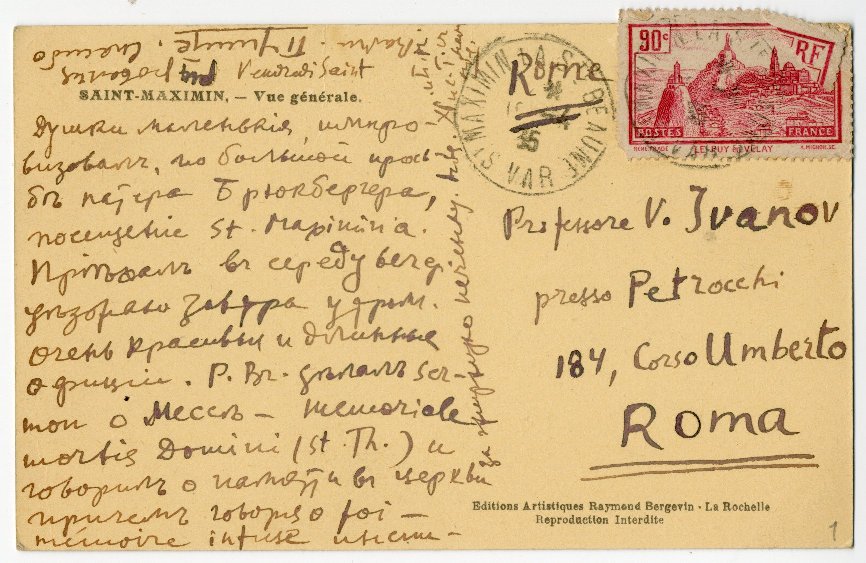 Vendredi Saint
SAINT-MAXIMIN, — Vue générale.
Душки маленькия, импро
визовалъ, по большой прось
бѣ патера Брюкбергера,
посещение St. Maximin'a.
Приѣхалъ въ середу вечер.
уѣзжаю завтра утром.
Очень красивыи и длинныя
официи. P. Br. дѣлалъ Ser-
mon о Мессѣ — memoriale
mortis Domini (St. Th.) и
говорилъ о памяти въ церкви
причемъ говорю о foi —
mémoire infuse
Rome
ST MAXIMIN-LA-STE BEAUME
VAR
90c
RF
POSTES FRANCE
LE PUY EN VELAY
Professore V. Ivanov
presso Petrocchi
184, Corso Umberto
ROMA
Editions Artistiques Raymond Bergevin - La Rochelle
Reproduction Interdite
1